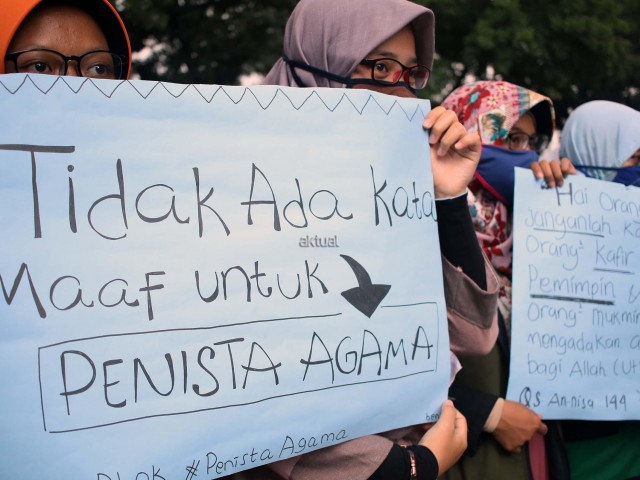 Tidak Ada Kata
Maaf untuk
PENISTA AGAMA
#Penista Agama
aktual
Hai Orang
Janganlah
Orang² Kafir
Pemimpin
Orang² mukmin
mengadakan
bagi Allah
QS An nisa 144